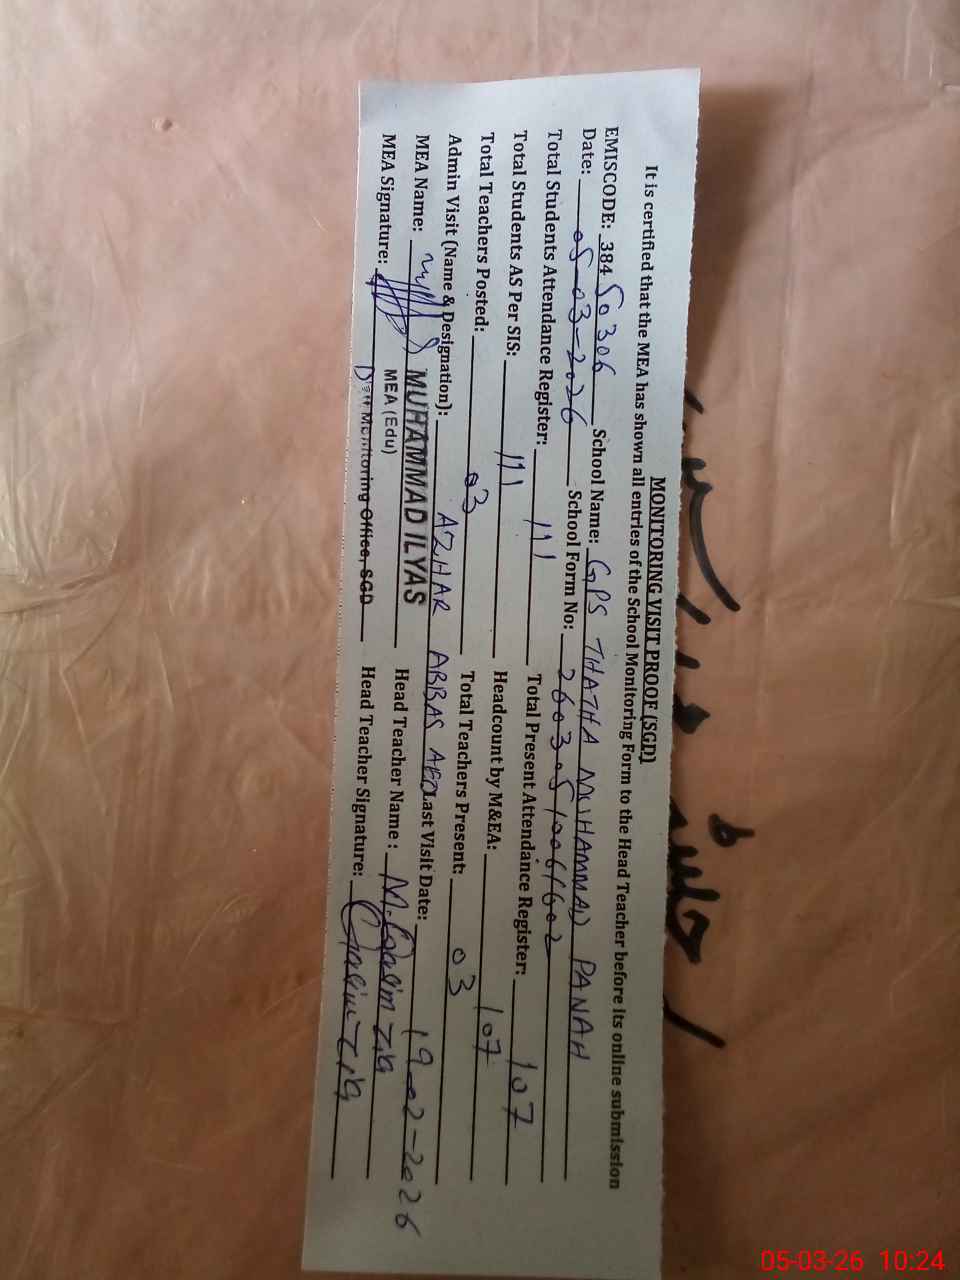 MONITORING VISIT PROOF (SGD)
It is certified that the MEA has shown all entries of the School Monitoring Form to the Head Teacher before its online submission
EMISCODE: 38450306 School Name: GPS THATHA MUHAMMAD PANAH
Date: 05-03-2026 School Form No: 26030510061602
Total Students Attendance Register: 111 Total Present Attendance Register: 107
Total Students AS Per SIS: 111 Headcount by M&EA: 107
Total Teachers Posted: 03 Total Teachers Present: 03
Admin Visit (Name & Designation): AZHAR ABBAS AEO Last Visit Date: 19-02-2026
MEA Name: MUHAMMAD ILYAS Head Teacher Name: M. Qasim Zia
MEA (Edu)
MEA Signature: Distt Monitoring Office, SGD Head Teacher Signature: Qasim Zia
05-03-26 10:24